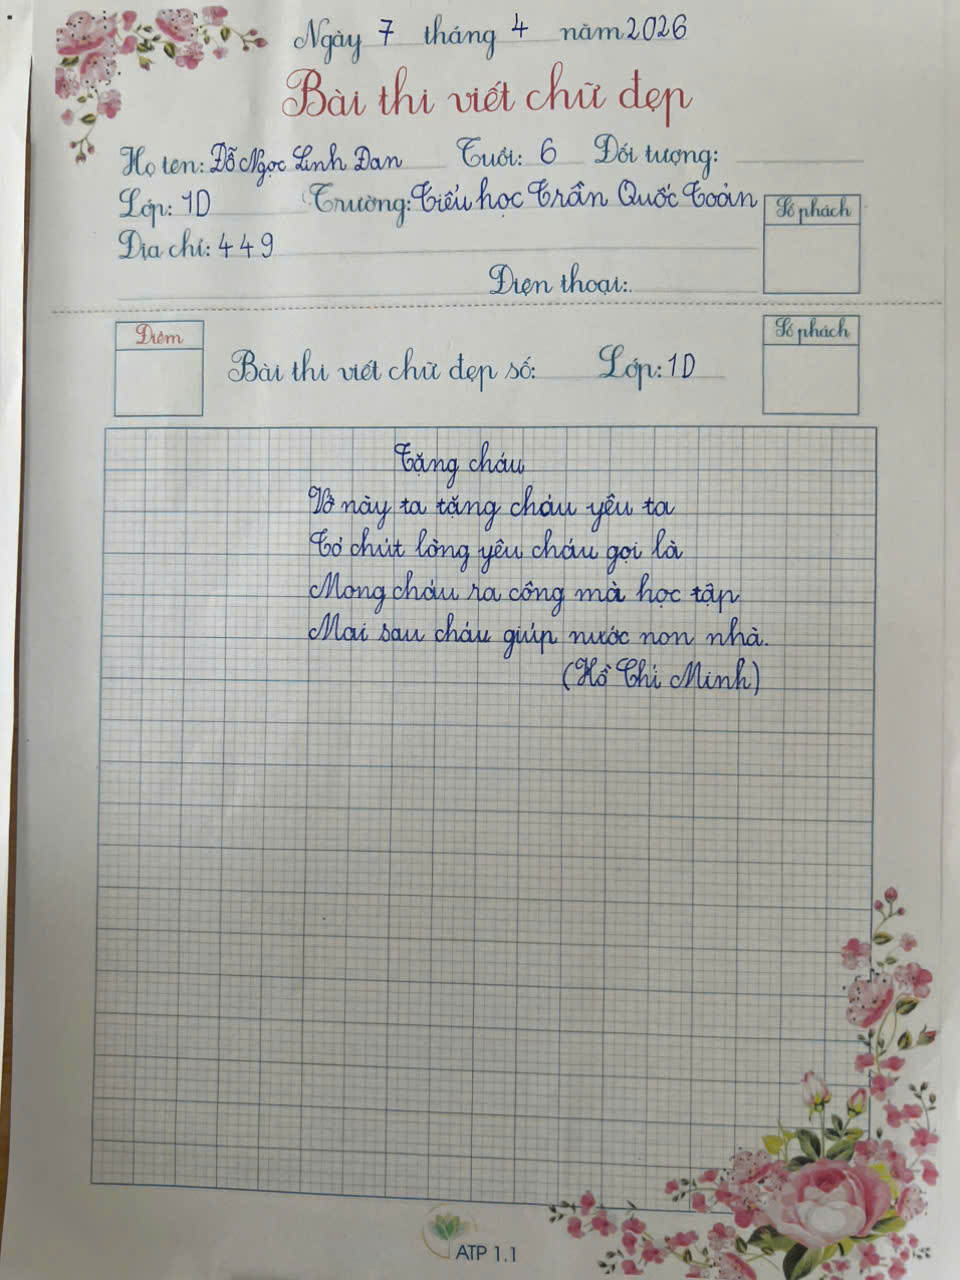 Ngày 7 tháng 4 năm 2026
Bài thi viết chữ đẹp
Họ tên: Đỗ Ngọc Linh Đan Tuổi: 6 Đối tượng:
Lớp: 1D Trường: Tiểu học Trần Quốc Toản
Địa chỉ: 449
Điện thoại:
Số phách
Điểm
Bài thi viết chữ đẹp số: Lớp: 1D
Số phách
Tặng cháu
Vở này ta tặng cháu yêu ta
Tỏ chút lòng yêu cháu gọi là
Mong cháu ra công mà học tập
Mai sau cháu giúp nước non nhà.
(Hồ Chí Minh)
ATP 1.1